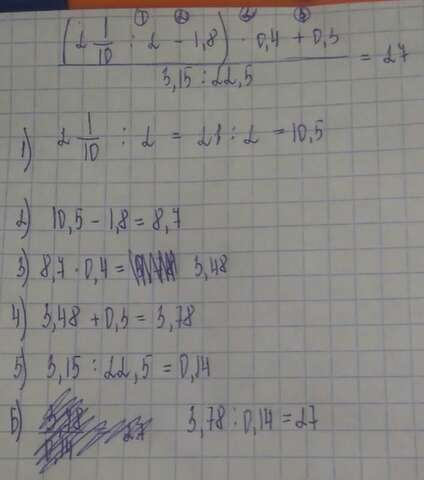 ① ② ③ ④
(2 1/10 : 2 - 1,8) · 0,4 + 0,3
= 27
3,15 : 22,5
1) 2 1/10 : 2 = 21 : 2 = 10,5
2) 10,5 - 1,8 = 8,7
3) 8,7 · 0,4 = 3,48
4) 3,48 + 0,3 = 3,78
5) 3,15 : 22,5 = 0,14
6) 3,78 : 0,14 = 27